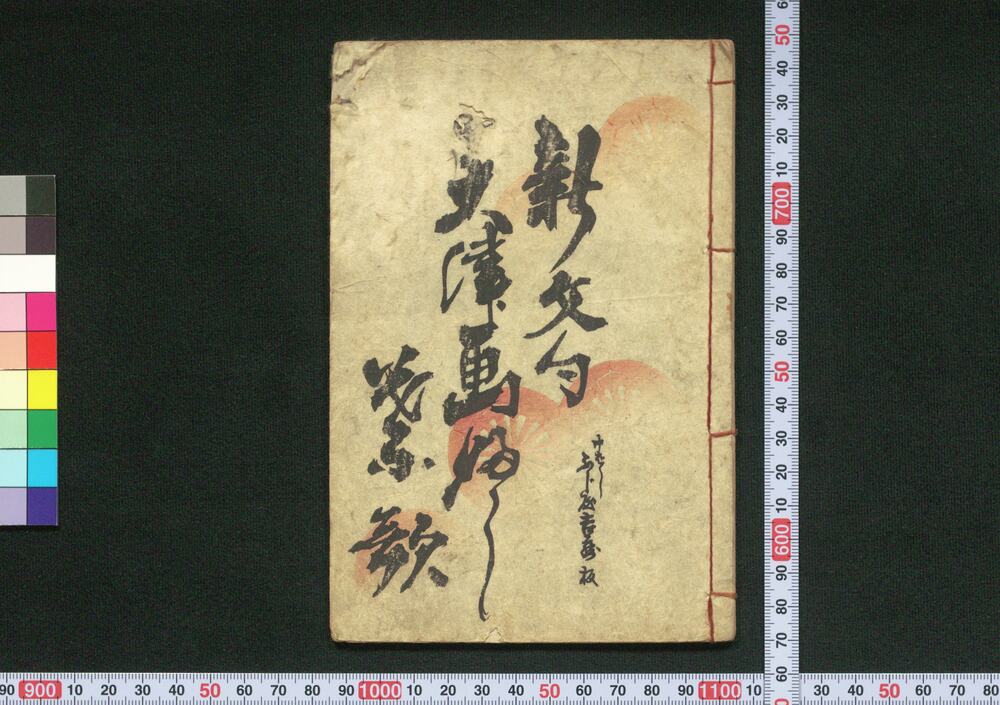 新文句
中はし
ふじ屋吉蔵板
大津画ぶし
葉歌
50
40
30
20
10
700
90
80
70
60
50
40
30
20
10
600
90
80
70
60
90 900 10 20 30 40 50 60 70 80 90 1000 10 20 30 40 50 60 70 80 90 1100 10 30 40 50 60 70 80